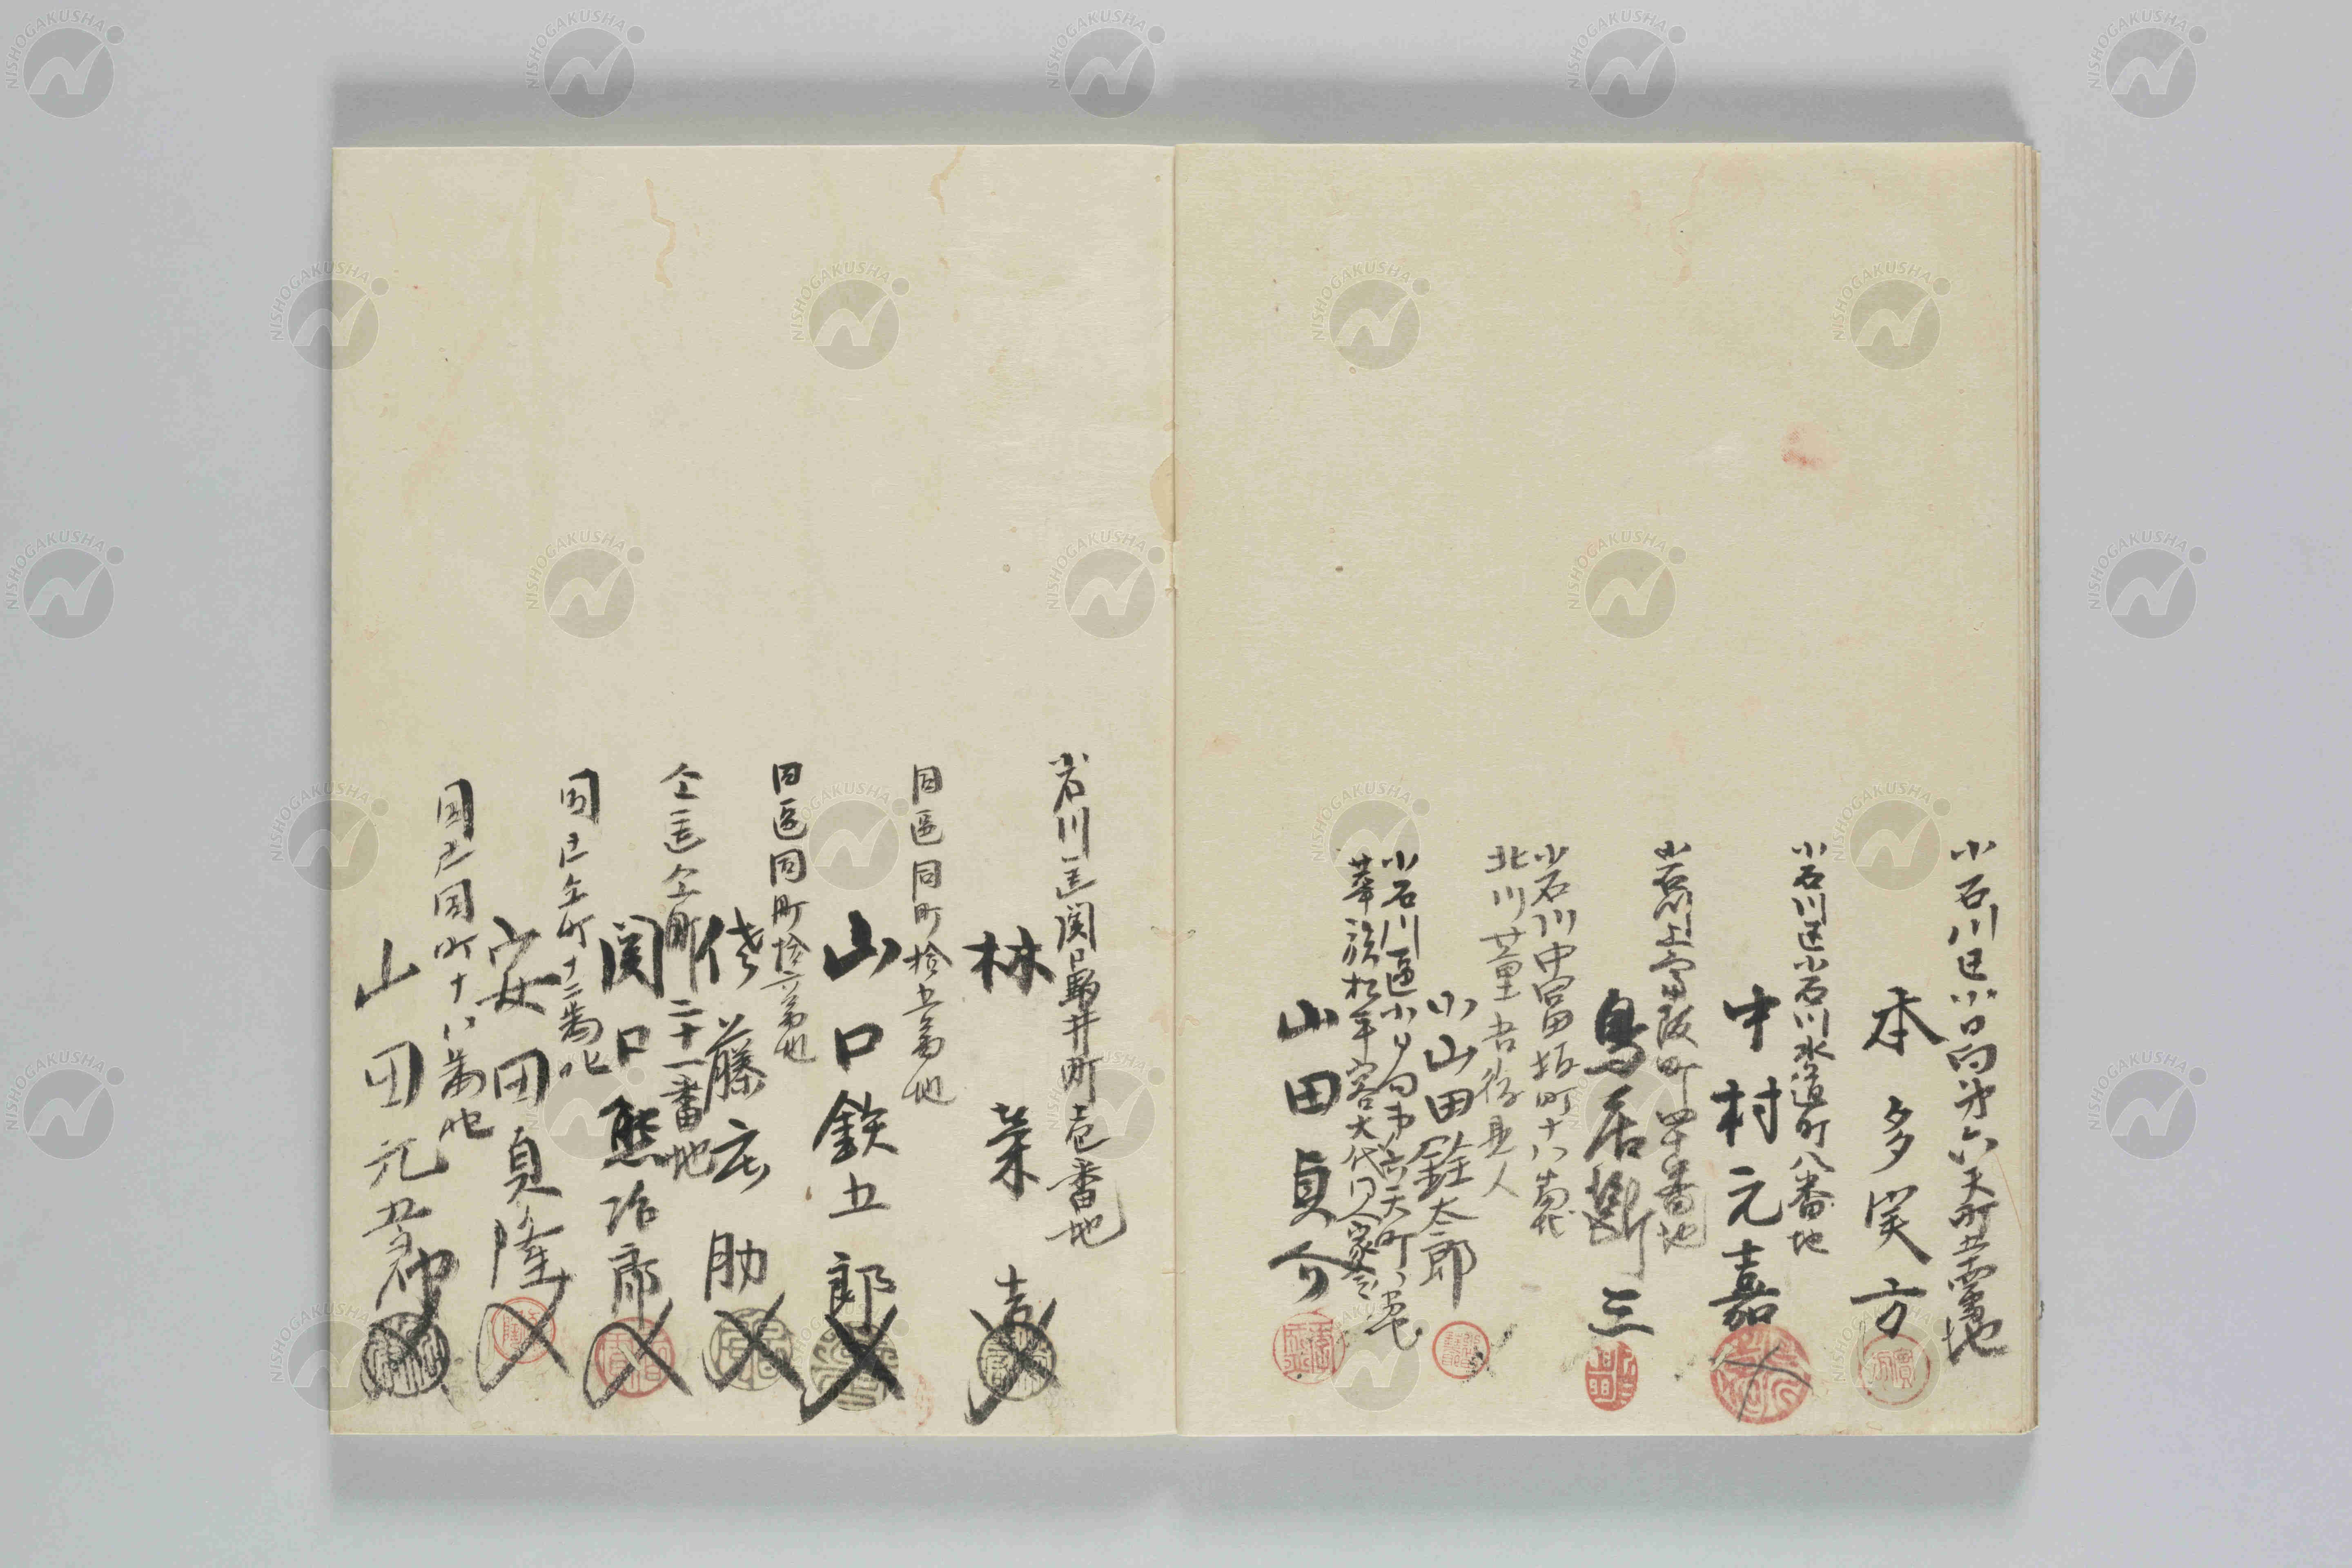 小石川区小日向第六天町五十四番地
本多実方
小石川区小石川水道町八番地
中村元嘉
小石川上富坂町四十番地
鳥居断三
小石川中富坂町十八番地
北川董吉後見人
小山田銓太郎
小石川區小日向第六天町
華族松平容大代人家令
山田貞介
小石川区関口駒井町壱番地
林栄吉
同區同町拾五番地
山口鉄五郎
同區同町拾六番地
佐藤庄助
仝区仝町二十一番地
関口熊治郎
同区仝町十二番地
安田貞隆
同区同町十八番地
山田元
NISHOGAKUSHA